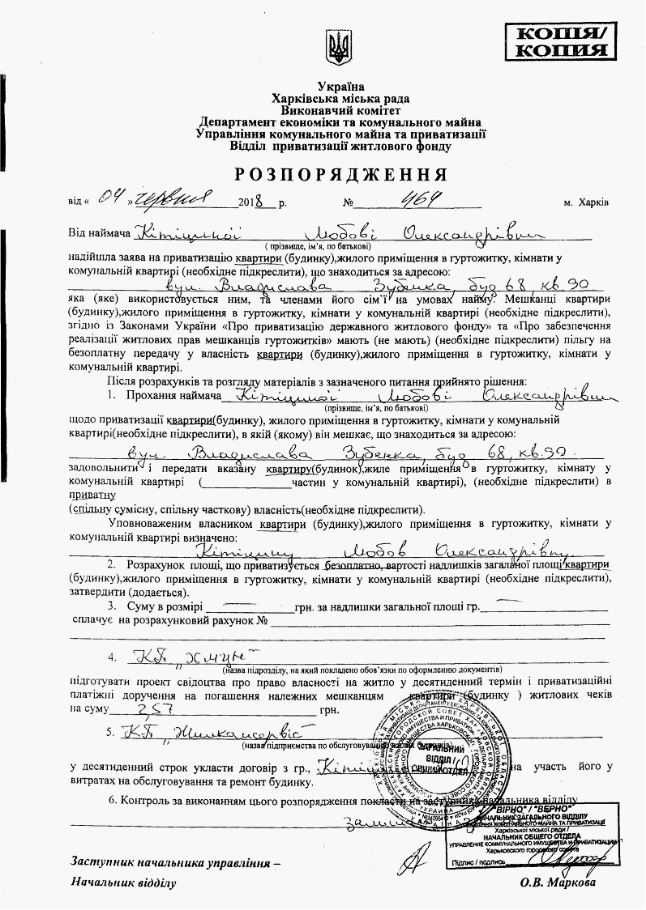 КОПІЯ/
КОПИЯ
Україна
Харківська міська рада
Виконавчий комітет
Департамент економіки та комунального майна
Управління комунального майна та приватизації
Відділ приватизації житлового фонду
РОЗПОРЯДЖЕННЯ
від « 04 » червня 2018 р. № 464 м. Харків
Від наймача Кітіциної Любові Олександрівни
( прізвище, ім'я, по батькові)
надійшла заява на приватизацію квартири (будинку),жилого приміщення в гуртожитку, кімнати у
комунальній квартирі (необхідне підкреслити), що знаходиться за адресою:
вул. Владислава Зубенка, буд 68, кв. 90
яка (яке) використовується ним, та членами його сім'ї на умовах найму. Мешканці квартири
(будинку),жилого приміщення в гуртожитку, кімнати у комунальній квартирі (необхідне підкреслити),
згідно із Законами України «Про приватизацію державного житлового фонду» та «Про забезпечення
реалізації житлових прав мешканців гуртожитків» мають (не мають) (необхідне підкреслити) пільгу на
безоплатну передачу у власність квартири (будинку),жилого приміщення в гуртожитку, кімнати у
комунальній квартирі.
Після розрахунків та розгляду матеріалів з зазначеного питання прийнято рішення:
1. Прохання наймача Кітіциної Любові Олександрівни
(прізвище, ім'я, по батькові)
щодо приватизації квартири(будинку), жилого приміщення в гуртожитку, кімнати у комунальній
квартирі(необхідне підкреслити), в якій (якому) він мешкає, що знаходиться за адресою:
вул. Владислава Зубенка, буд 68, кв. 90.
задовольнити і передати вказану квартиру(будинок),жиле приміщення в гуртожитку, кімнату у
комунальній квартирі (____________частин у комунальній квартирі), (необхідне підкреслити) в
приватну
(спільну сумісну, спільну часткову) власність(необхідне підкреслити).
Уповноваженим власником квартири (будинку),жилого приміщення в гуртожитку, кімнати у
комунальній квартирі визначено:
Кітіцину Любов Олександрівну
2. Розрахунок площі, що приватизується безоплатно, вартості надлишків загальної площі квартири
(будинку),жилого приміщення в гуртожитку, кімнати у комунальній квартирі (необхідне підкреслити),
затвердити (додається).
3. Суму в розмірі ____________грн. за надлишки загальної площі гр.____________
сплачує на розрахунковий рахунок № ____________
4. КП „ЖМЦН"
(назва підрозділу, на який покладено обов'язки по оформленню документів)
підготувати проект свідоцтва про право власності на житло у десятиденний термін і приватизаційні
платіжні доручення на погашення належних мешканцям квартири (будинку ) житлових чеків
на суму 257 грн.
5. КП „Жилкомсервіс"
(назва підприємства по обслуговуванню
у десятиденний строк укласти договір з гр., на участь його у
витратах на обслуговування та ремонт будинку.
6. Контроль за виконанням цього розпорядження покласти на заступника начальника відділу
ЗАГАЛЬНИЙ
ВІДДІЛ
ОБЩИЙ ОТДЕЛ
УКРАИНА
"ВІРНО" / "ВЕРНО"
НАЧАЛЬНИК ЗАГАЛЬНОГО ВІДДІЛУ
УПРАВЛІННЯ КОМУНАЛЬНОГО МАЙНА ТА ПРИВАТИЗАЦІЇ
Харківської міської ради /
НАЧАЛЬНИК ОБЩЕГО ОТДЕЛА
УПРАВЛЕНИЕ КОММУНАЛЬНОГО ИМУЩЕСТВА И ПРИВАТИЗАЦИИ
Харьковского городского совета
Підпис / подпись
Заступник начальника управління –
Начальник відділу О.В. Маркова